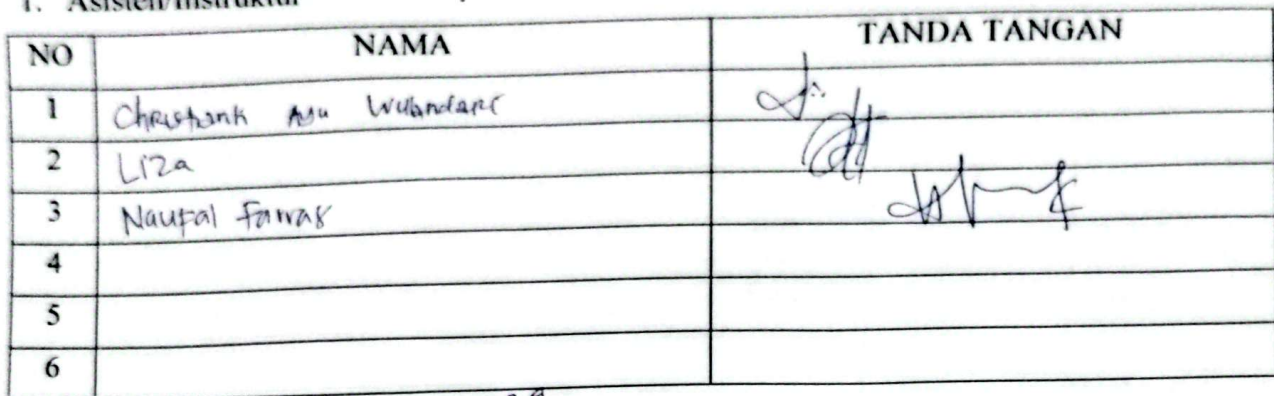 1. Asisten/Instruktur
NO NAMA TANDA TANGAN
1 Ayu Wulandari
2 Liza
3 Naufal Farras
4
5
6